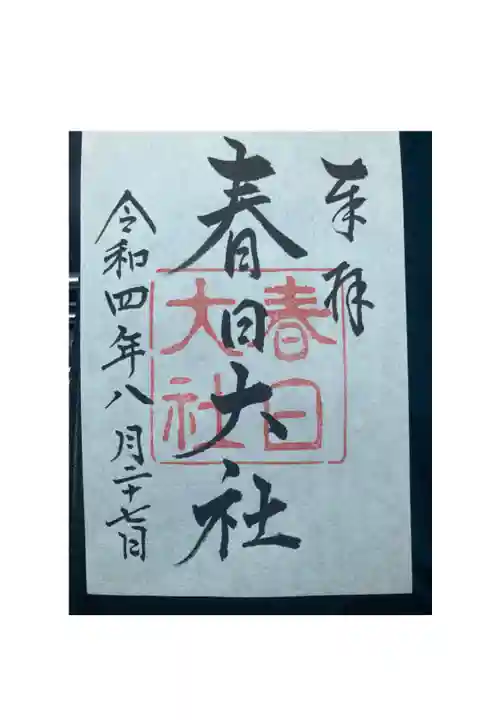 奉拝
春日大社
春日
大社
令和四年八月二十七日